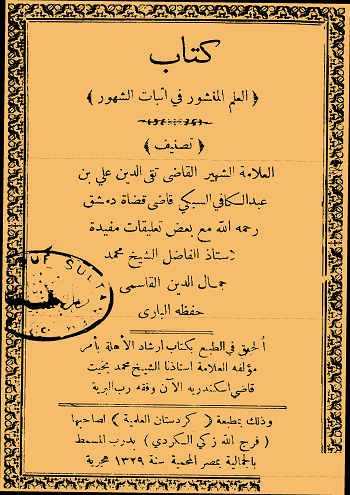 كتاب
﴿ العلم المنشور في اثبات الشهور ﴾
﴿ تصنيف ﴾
العلامة الشهير القاضى تقى الدين علي بن
عبدالكافي السبكي قاضى قضاة دمشق
رحمه الله مع بعض تعليقات مفيدة
لاستاذ الفاضل الشيخ محمد
جمال الدين القاسمى
حفظه البارى
ألحق في الطبع بكتاب ارشاد الأهلة بأمر
مؤلفه العلامة استاذنا الشيخ محمد بخيت
قاضي اسكندريه الآن وفقه رب البرية
وذلك بمطبعة ( كردستان العلمية ) لصاحبها
( فرج الله زكي الكردي ) بدرب المسمط
بالجمالية بمصر المحمية سنة ١٣٢٩ هجرية
SULTA